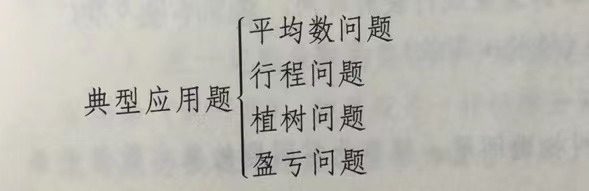 典型应用题
平均数问题
行程问题
植树问题
盈亏问题